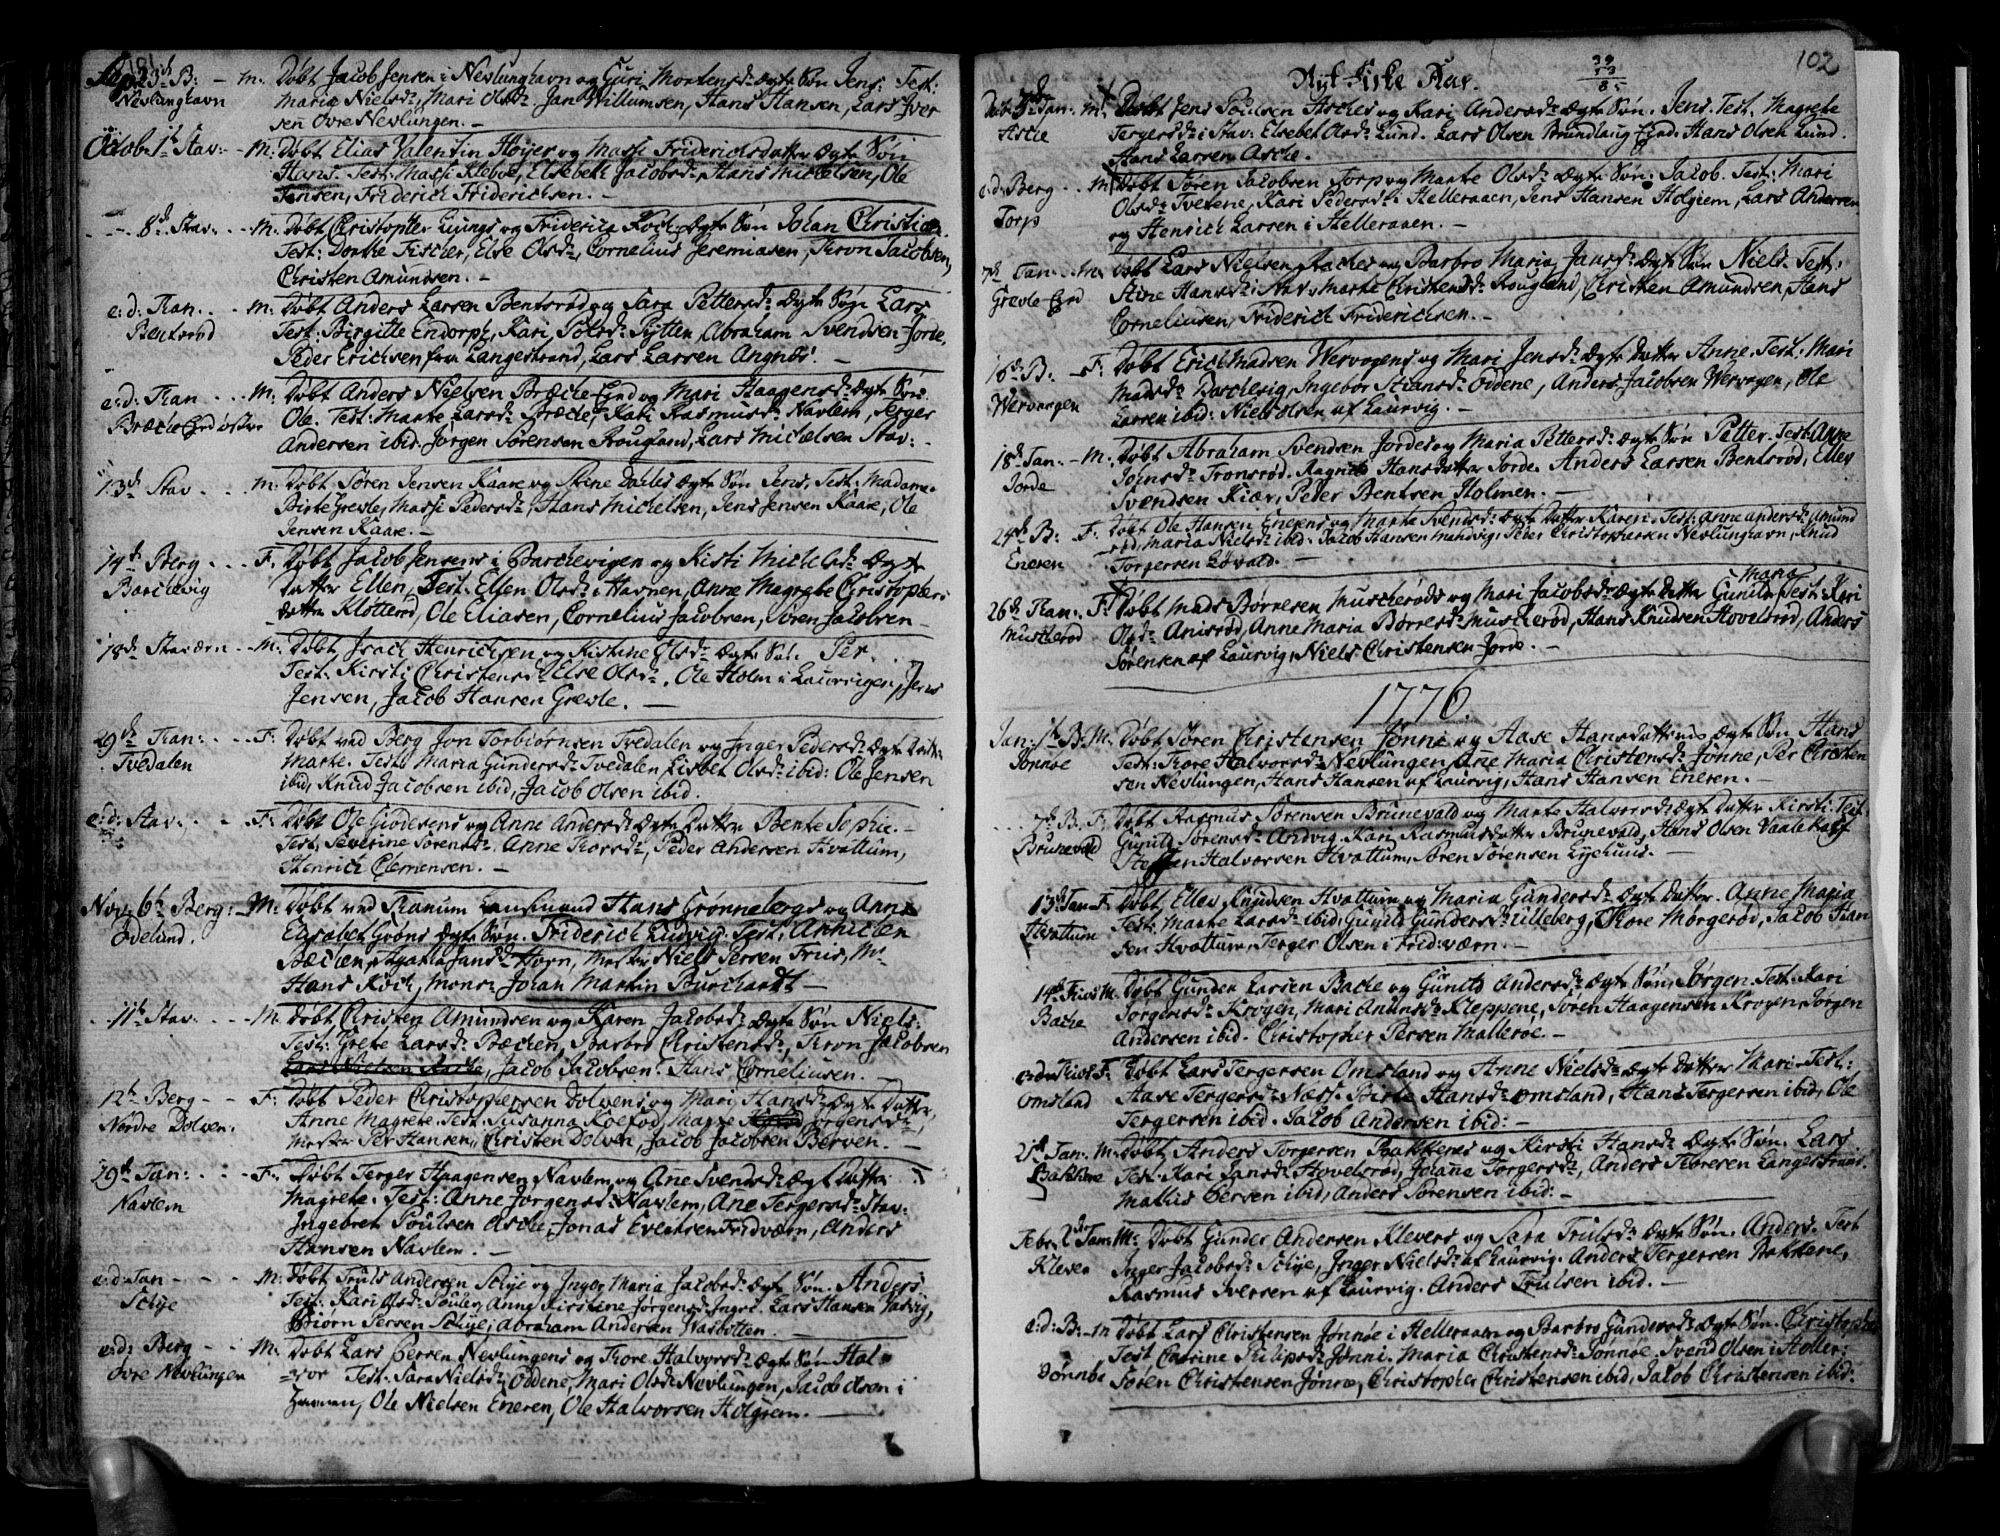 101
Sept. 23d B: - M: Døbt Jacob Jensen i Nevlunghavn og Guri Mortensd: Ægte Søn Jens. Test:
Nevlunghavn Maria Nielsd:, Mari Olsd: Jan Willumsen, Hans Hansen, Lars Iver
sen Øvre Nevlungen. -
Octob: 1t Stav: - M: Døbt Elias Valentin Høyer og Massi Friderichsdatter Ægte Søn
Hans. Test: Massi Klebøe, Elsebeth Jacobsd:, Hans Michelsen, Ole
Jensen, Friderich Friderichsen. -
8d Stav: - M: Døbt Christopher og Friderica Koch Ægte Søn Johan Christian
Test: Dorthe Fischer, Else Olsd:, Cornelius Jeremiasen, Tron Jacobsen,
Christen Amundsen. -
e: d: Tan: - M: Døbt Anders Larsen Bentsrød og Sara Pettersd: Ægte Søn Lars
Bentsrød Test: Birgitte Endorph, Kari Polsd: Pytten, Abraham Svendsen Jorde,
Peder Erichsen fra Langestrand, Lars Larsen Angnes. -
e: d: Tan - M: Døbt Anders Nielsen Bræche Eyd og Mari Haagensd: Ægte Søn
Bræche Eyd østre Ole. Test: Marte Larsd: Bræche, Kari Rasmusd: Navlem, Terger
Andersen ibid. Jørgen Sørensen Rougland, Lars Michelsen Stav: -
13d Stav - M: Døbt Søren Jensen Kaare og Stine Ægte Søn Jens, Test: Madame
Birte Grevle, Massi Pedersd:, Hans Michelsen, Jens Jensen Kaare, Ole
Jensen Kaare. -
14d Berg - F. Døbt Jacob Jensens i Barchevigen og Kisti Michelsd: Ægte
Barchevig Datter Ellen, Test: Ellen Olsd: i Havnen, Anne Magrete Christophers
datter Klotterød, Ole Eliasen, Cornelius Jacobsen, Søren Jacobsen -
18d Staværn - M: Døbt Isach Henrichsen og Kistine Olsd: Ægte Søn Per.
Test: Kirsti Christensd: Else Olsd:. Ole Holm i Laurvigen, Jens
Jensen, Jacob Hansen Grevle. -
29d Tan: - F: Døbt ved Berg Jon Torbiørnsen Tvedalen og Inger Pedersd: Ægte Datter
Tvedalen Marte. Test: Maria Gundersd: Tvedalen Lisbet Olsd: ibid: Ole Jensen
ibid, Knud Jacobsen ibid, Jacob Olsen ibid.
e: d: Stav: - F: Døbt Ole og Anne Andersd: Ægte Datter Bente Sophie. -
Test. Severine Sørensd:. Anne Torsd:, Peder Andersen Hvattum,
Henrich Clemensen. -
Nov: 6t Berg: - M: Døbt ved Tranum Hans Grønneberg og Anne
Odelund. Elisabet Ægte Søn. Friderich Ludvig. Test:
Bæchen, Jansd: Horn, Mester Niels Persen Friis, Mr
Hans Koch, Monsr Johan Martin Burchardt -
11t Stav: - M: Døbt Christen Amundsen og Karen Jacobsd: Ægte Søn Niels.
Test: Grete Larsd: Bæchen, Barbro Christensd:, Tron Jacobsen
Lars Nielsen Aache, Jacob Jacobsen. Hans Corneliusen.
12t Berg - F: Døbt Peder Christophersen Dolvens og Mari Hansd: Ægte Datter
Nordre Dolven. Anne Magrete. Test: Susanna Marte Jørgensd:,
Mester Per Hansen, Christen Dolven, Jacob Jacobsen Berven. -
29d Tan: - F: Døbt Terger Haagensen Navlem og Ane Svendsd: Ægt Datter
Navlem Magrete. Test: Anne Jørgensd: Navlem, Ane Tergersd: Stav:
Ingebret Poulsen Asche, Jonas Evensen Fridværn, Anders
Hansen Navlem. -
e: d: Tan - M: Døbt Truls Andersen Schye og Inger Maria Jacobsd: Ægte Søn. Anders.
Schye Test: Kari Olsd: Anne Kirstine Jørgensd: Lars Hansen
Biørn Persen Schye, Abraham Andersen Vasbotten. -
e: d: Berg - M: Døbt Lars Persen Nevlungens og Tore Halvorsd: Ægte Søn Hal-
Øvre Nevlungen vor Test: Sara Nielsd: Oddene, Mari Olsd: Nevlungen, Jacob Olsen i
Ole Nielsen Eneren, Ole Halvorsen Holgiem. -
102
Nyt Kirke Aar.
Dec: 3d Tan: M: Døbt Jens Poulsen Asches og Kari Andersd: Ægte Søn. Jens. Test. Magrete
Asche Tergersd: i Stav: Elsebet Olsd: Lund. Lars Olsen Brundlaug Eyd. Hans Olsen Lund.
Hans Larsen Asche.
e: d: Berg - M: Døbt Søren Jacobsen Torp og Marte Olsd: Ægte Søn. Jacob. Test: Mari
Torp Olsd: Tvetene, Kari Pedersd: Helleraaen, Jens Hansen Holgiem, Lars Andersen
og Henrich Larsen i Helleraaen. -
7d Tan: - M: Døbt Lars Nielsen Aaches og Barbro Maria Jansd: Ægte Søn Niels. Test:
Grevle Eyd Stine Hansd: i Stav: Marte Christensd: Rougland, Christen Amundsen, Hans
Corneliusen, Friderich Friderichsen. -
16d B: - F: Døbt Erich Madsen Wervogens og Mari Jensd: Ægte Datter Anne. Test: Mari
Wervogen Madsd: Barchevig, Ingebor Stiansd: Oddene, Anders Jacobsen Wervogen, Ole
Larsen ibid: Niels Olsen af Laurvig. -
18d Tan: - M: Døbt Abraham Svendsen Jordes og Maria Pettersd: Ægte Søn Petter. Test: Anne
Jorde Johnsd: Tronsrød. Ragnild Hansdatter Jorde. Anders Larsen Bentsrød, Ellev
Svendsen Kiær, Peder Bentsen Holmen. -
24d B: F: Døbt Ole Hansen Enerens og Marte Svendsd: Ægte Datter Karen. Test: Anne Andersd: Amund
Eneren rød, Maria Nielsd: ibid: Jacob Hansen Peder Christophersen Nevlunghavn, Knud
Torgersen Løvald. -
26d Tan. F: Døbt Mads Børresen Muscherøds og Mari Jacobsd: Ægte Datter Gunild Maria Test: Kari
Muscherød Olsd: Anisrød, Anne Maria Børresd: Muscherød, Hans Knudsen Hovelsrød, Anders
Sørensen af Laurvig, Niels Christensen Jorde. -
1776.
Jan: 1t B: M: Døbt Søren Christensen Jønne og Aase Hansdatters Ægte Søn Hans
Jonnøe Test: Tore Halvorsd: Nevlungen, Ane Maria Christensd: Jønne, Per Christen
sen Nevlungen, Hans Hansen af Laurvig, Hans Hansen Eneren. -
7d B. F. Døbt Rasmus Sørensen Brunevald og Marte Halvorsd: Ægte Datter Kirsti. Test:
Brunevald Gunild Sørensd: Andvig. Kari Rasmusdatter Brunevald, Hans Olsen
Steffen Halvorsen Hvattum, Søren Sørensen Lysehuus. -
13d Tan F Døbt Ellev Knudsen Hvattum og Maria Gundersd: Ægte Datter. Anne Maria
Hvattum Test: Marte Larsd: ibid: Gunild Gundersd: Lilleberg, Tore Morgerød, Jacob Han
sen Hvattum, Terger Olsen i Frid:værn. -
14d M. Døbt Gunder Larsen Bache og Gunild Andersd: Ægte Søn, Jørgen. Test: Kari
Bache Jorgensd: Krogen, Mari Anunsd: Kleppene, Søren Haagensen Krogen, Jørgen
Andersen ibid. Christopher Persen Malleroe. -
e: d: F. Døbt Lars Tergersen Omsland og Anne Nielsd: Ægte Datter Mari. Test:
Omsland Aase Tergersd: Næss. Birte Hansd: Omsland, Hans Tergersen ibid, Ole
Tergersen ibid. Jacob Andersen ibid: -
21d Tan: M: Døbt Anders Torgersen Bakkenes og Kirsti Hansd: Ægte Søn. Lars
Bakkene Test: Kari Jansd: Hovelsrød, Johana Torgersd:, Anders Langestrand.
Mattis Persen ibid, Anders Sørensen ibid: -
Febr: 2d Tan: M: Døbt Gunder Andersen Klevers og Sara Trulsd: Ægte Søn. Anders. Test
Kleven Inger Jacobsd: Schye, Inger Nielsd: af Laurvig. Anders Tergersen Bakkene,
Rasmus Iversen af Laurvig. Anders Trulsen ibid. -
e: d: B: - M Døbt Lars Christensen Jønnøe i Helleraaen og Barbro Gundersd: Ægte Søn. Christopher
Jonnøe Test Catrine Philipsd: Jønni. Maria Christensd: Jonnøe. Svend Olsen i Holler:
Søren Christensen Jønne, Christopher Christensen ibid, Jacob Christensen ibid: